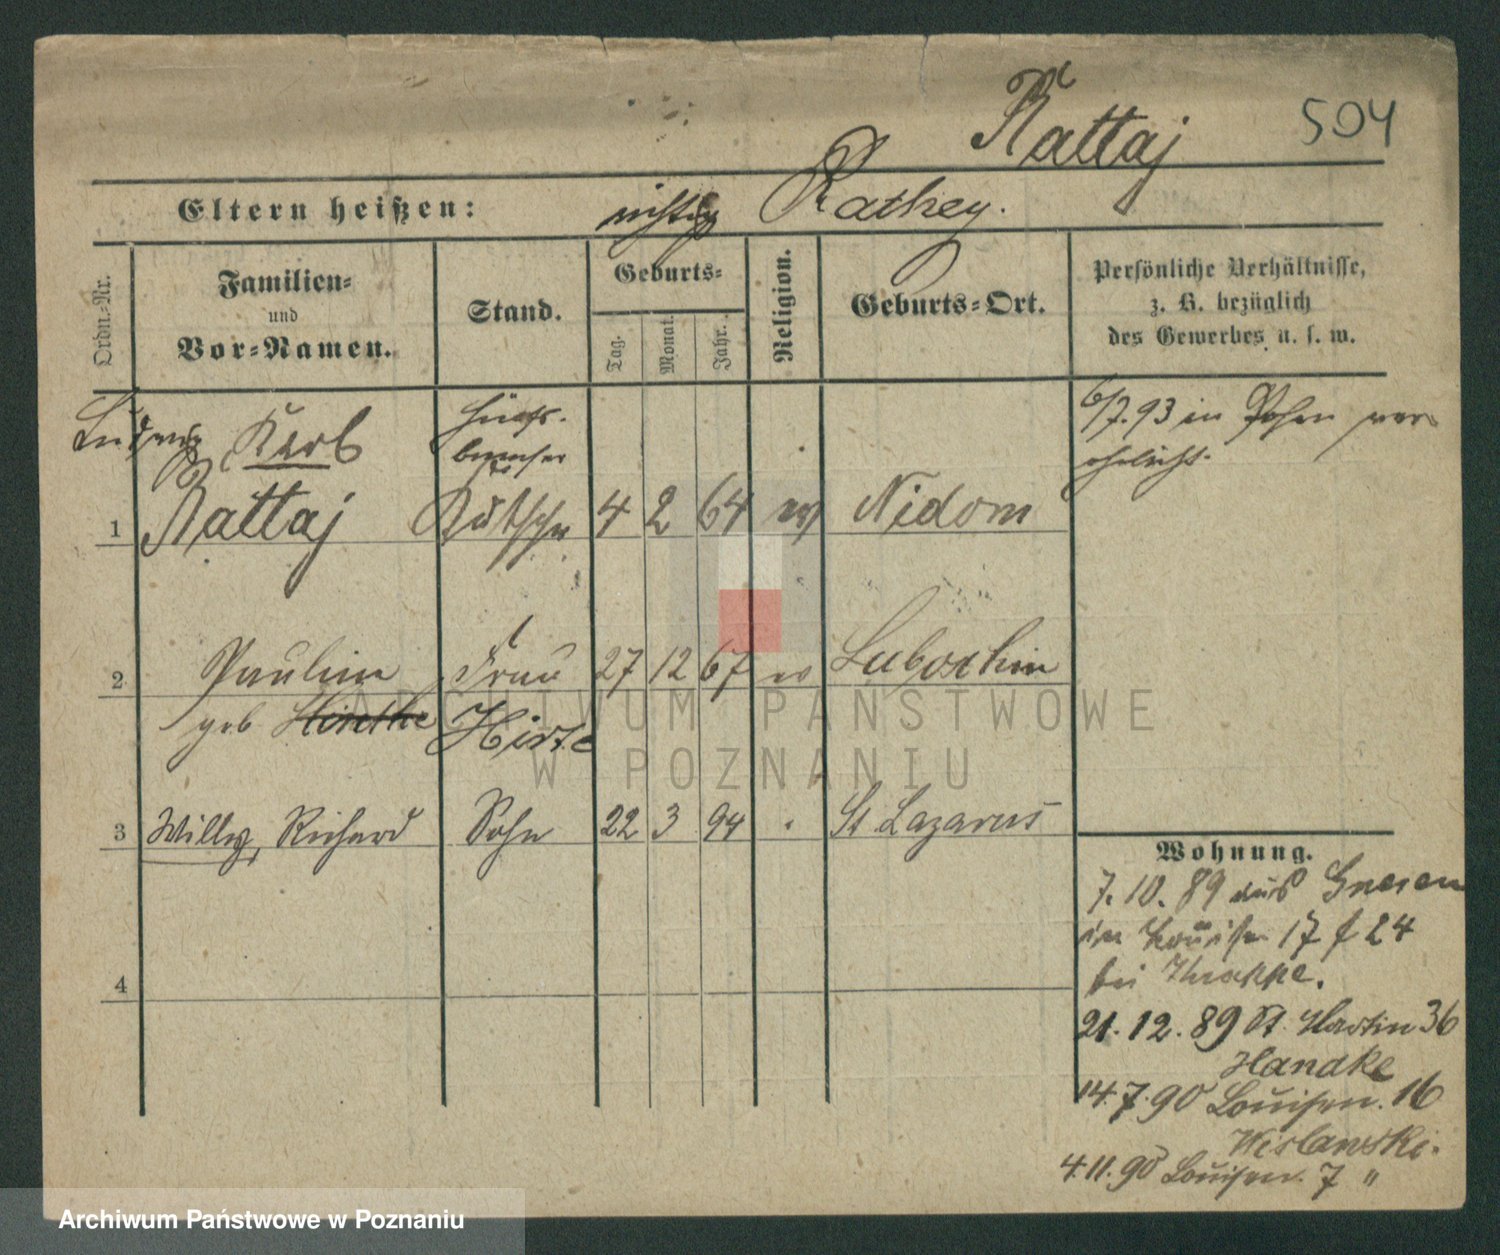 Rattaj 504
Eltern heißen: nicht Rathey.
Ordn.-Nr.
Familien-
und
Vor-Namen.
Stand.
Geburts-
Tag.
Monat.
Jahr.
Religion.
Geburts-Ort.
Persönliche Verhältnisse,
z. B. bezüglich
des Gewerbes u. s. w.
Ludwig Karl
6/7.93 in Posen ver
ehelicht.
1 Rattaj Kutscher 4 2 64 ev Nidom
2 Paulin Frau 27 12 67 ev Luboschin
geb Hirthe Hirte
3 Willy, Richard Sohn 22 3 94 " St Lazarus
4
Wohnung.
7.10.89 aus Gnesen
in Louisen 17 f 24
bei
21.12.89 St. Martin 36
Handke
14.7.90 Louisen. 16
Wislawski.
4.11.90 Louisen. 7 "
ARCHIWUM PAŃSTWOWE
W POZNANIU
Archiwum Państwowe w Poznaniu